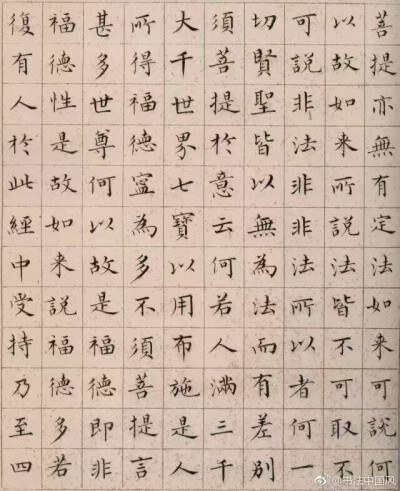 菩提亦無有定法如来可說何
以故如来所說法皆不可取不
可說非法非非法所以者何一
切賢聖皆以無為法而有差別
須菩提於意云何若人滿三千
大千世界七寶以用布施是人
所得福德寧為多不須菩提言
甚多世尊何以故是福德即非
福德性是故如来說福德多若
復有人於此經中受持乃至四
@书法中国风